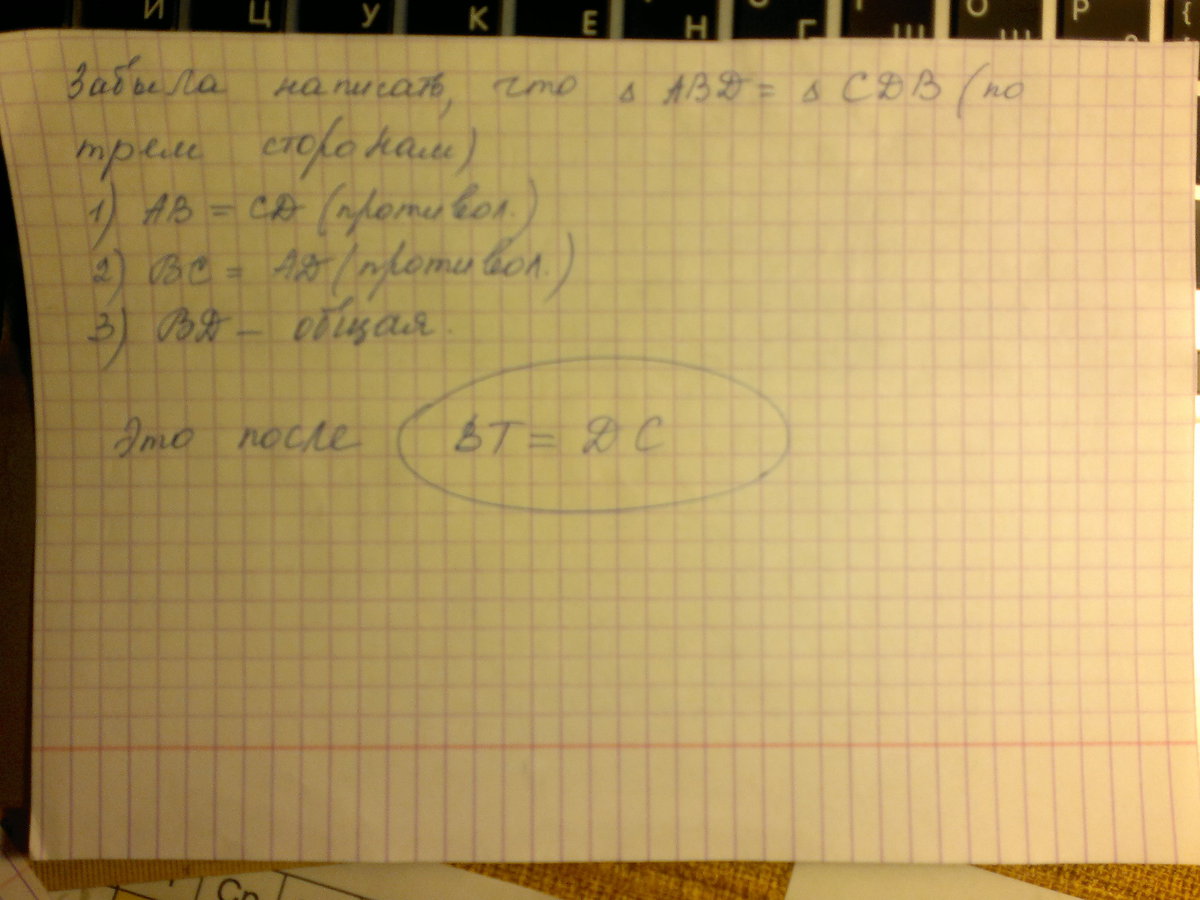 Й Ц У К Е Н Г Ш О Р {
Забыла написать, что Δ ABD = Δ CDB (по
трем сторонам)
1) AB = CD (противол.)
2) BC = AD (противол.)
3) BD – общая.
Это после BT = DC
Ср